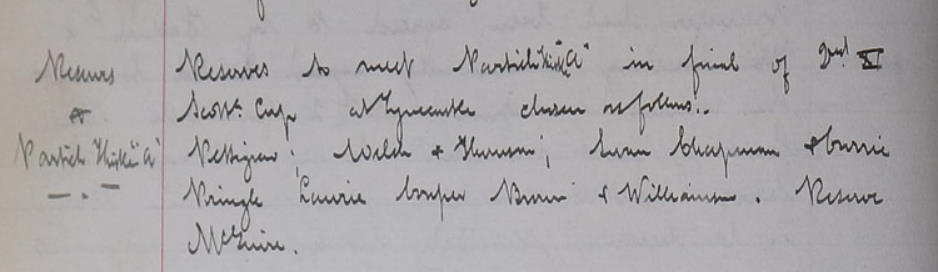 Reserves
v
Partick Thistle "A"
Reserves to meet Partick Thistle "A" in final of 2nd XI
Scott. Cup at Tynecastle chosen as follows:.
Pettigrew: Wilson & Thomson; Chapman & Currie
Pringle Laurie Cooper Brown & Williamson. Reserve
McGuire.